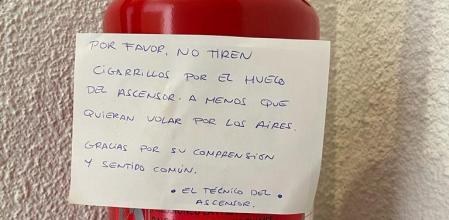 POR FAVOR, NO TIREN
CIGARRILLOS POR EL HUECO
DEL ASCENSOR. A MENOS QUE
QUIERAN VOLAR POR LOS AIRES.
GRACIAS POR SU COMPRENSIÓN
Y SENTIDO COMÚN.
• EL TÉCNICO DEL •
ASCENSOR.